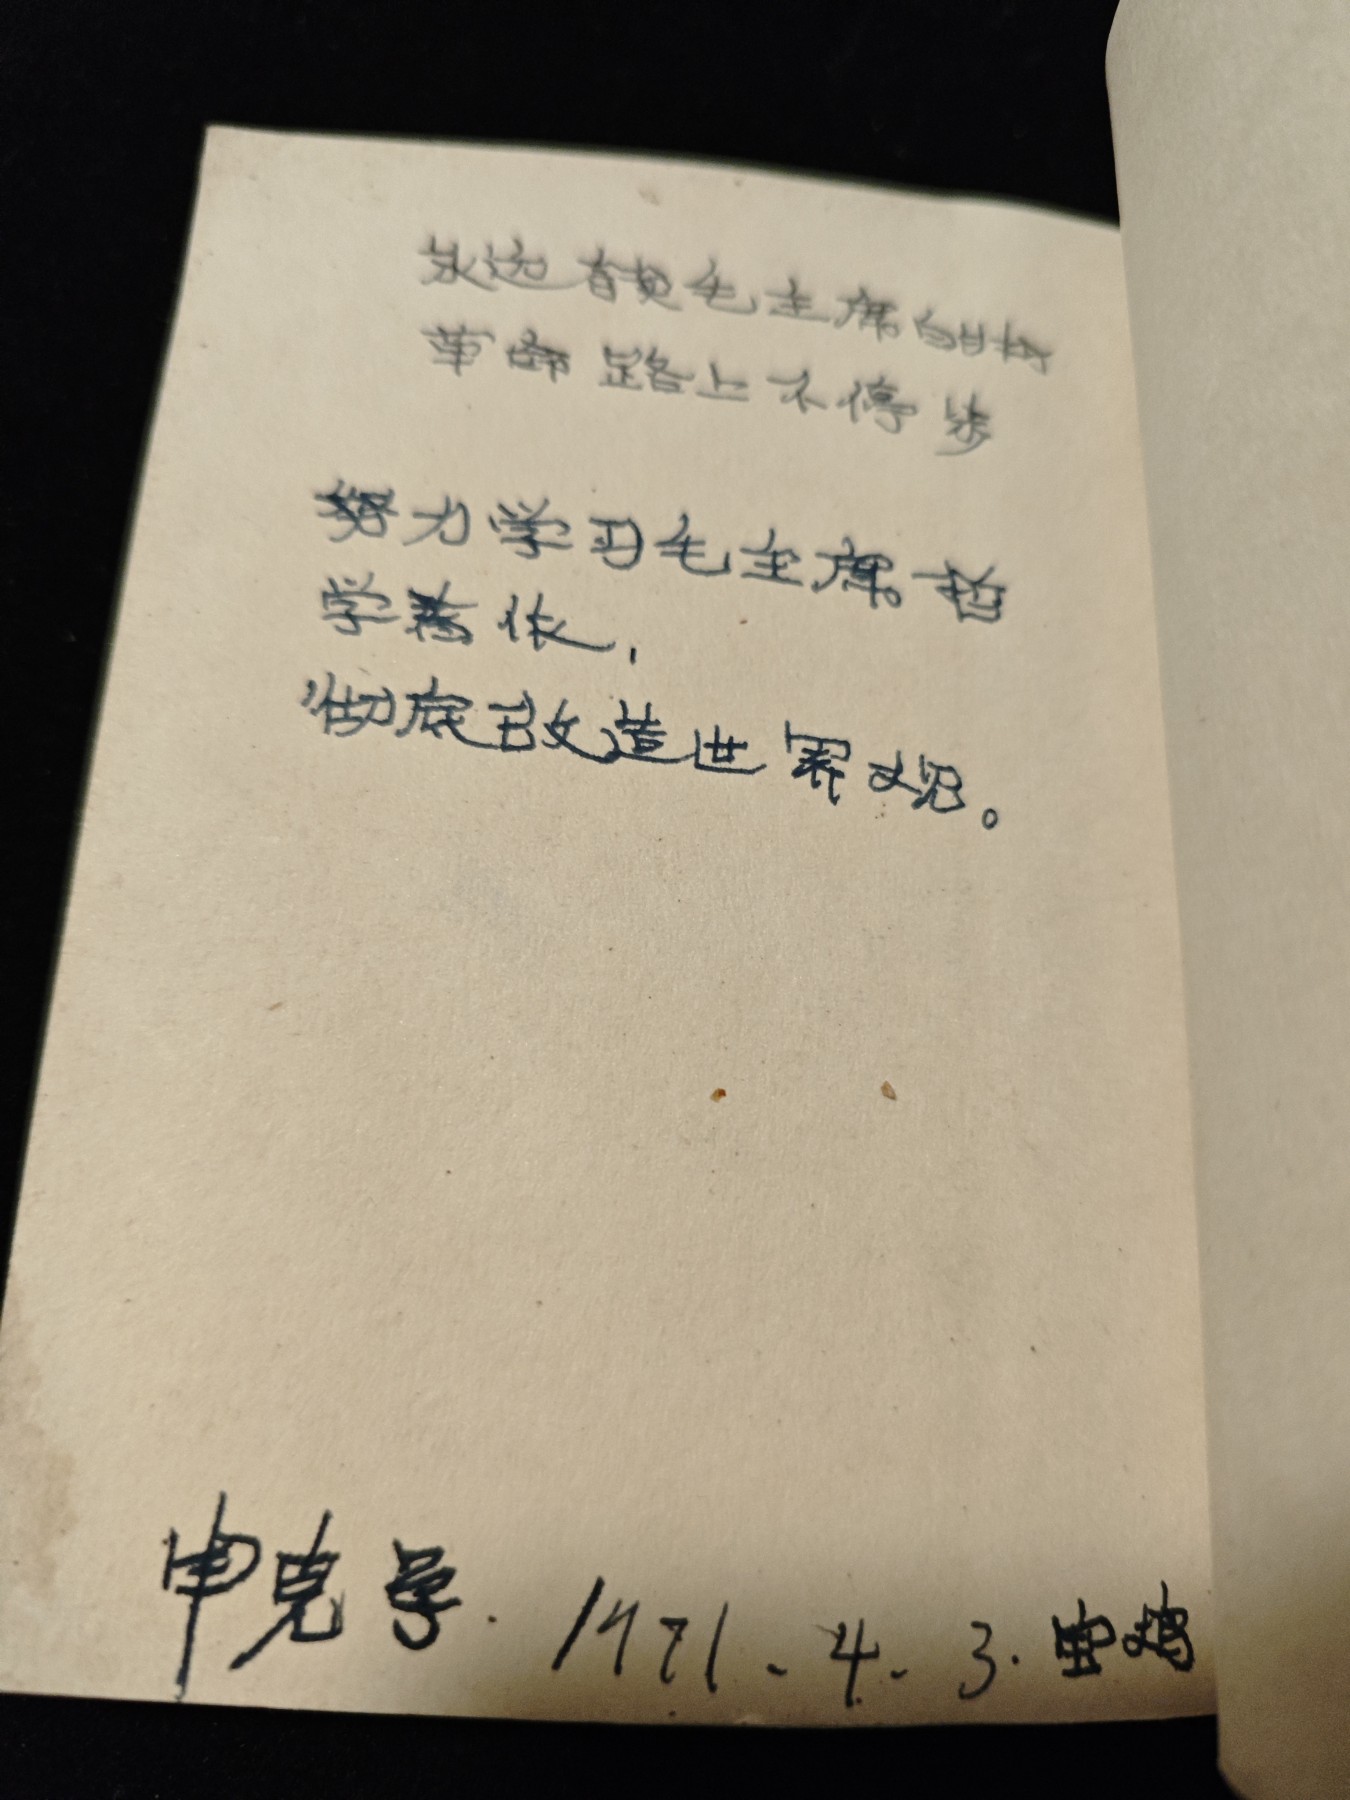 永远省毛主席的
革命路上不停步
努力学习毛主席哲
学著作,
彻底改造世界观。
申克学. 1971.4.3.宝鸡